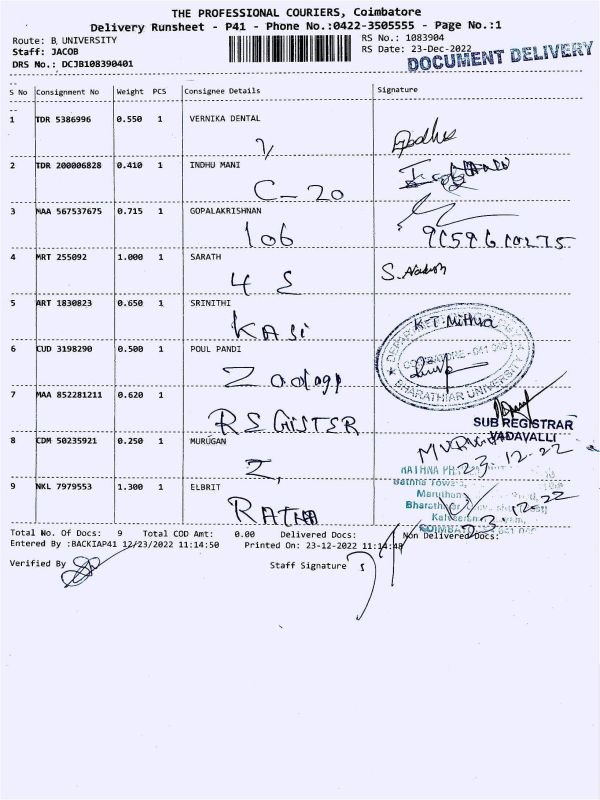 THE PROFESSIONAL COURIERS, Coimbatore
Delivery Runsheet - P41 - Phone No.:0422-3505555 - Page No.:1
Route: B UNIVERSITY
RS No.: 1083904
Staff: JACOB
RS Date: 23-Dec-2022
DRS No.: DCJB108390401
DOCUMENT DELIVERY
S No Consignment No Weight PCS Consignee Details Signature
1 TDR 5386996 0.550 1 VERNIKA DENTAL
2 TDR 200006828 0.410 1 INDHU MANI
C-20
3 MAA 567537675 0.715 1 GOPALAKRISHNAN
106
4 MRT 255092 1.000 1 SARATH
4 S
5 ART 1830823 0.650 1 SRINITHI
KASi
K.T. Mithra
6 CUD 3198290 0.500 1 POUL PANDI
BHARATHIAR UNIVERSITY
7 MAA 852281211 0.620 1
REGISTER
SUB REGISTRAR
VADAVALLI
8 CDM 50235921 0.250 1 MURUGAN
23-12-22
9 NKL 7979553 1.300 1 ELBRIT
RATHNA
Total No. Of Docs: 9 Total COD Amt: 0.00 Delivered Docs: Non Delivered Docs:
Entered By :BACKIAP41 12/23/2022 11:14:50 Printed On: 23-12-2022 11:14:48
Verified By Staff Signature